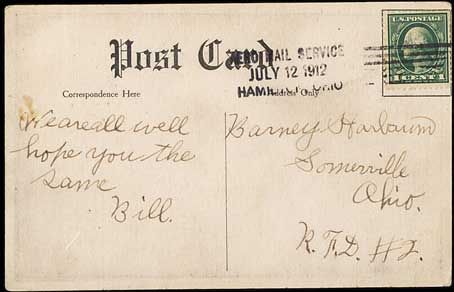 Post Card
U.S. POSTAGE
1 CENT 1
AERO MAIL SERVICE
JULY 12 1912
HAMILTON, OHIO
Correspondence Here
Address Only
We are all well
hope you the
same
Bill.
Barney
Somerville
Ohio.
R.F.D. #2.